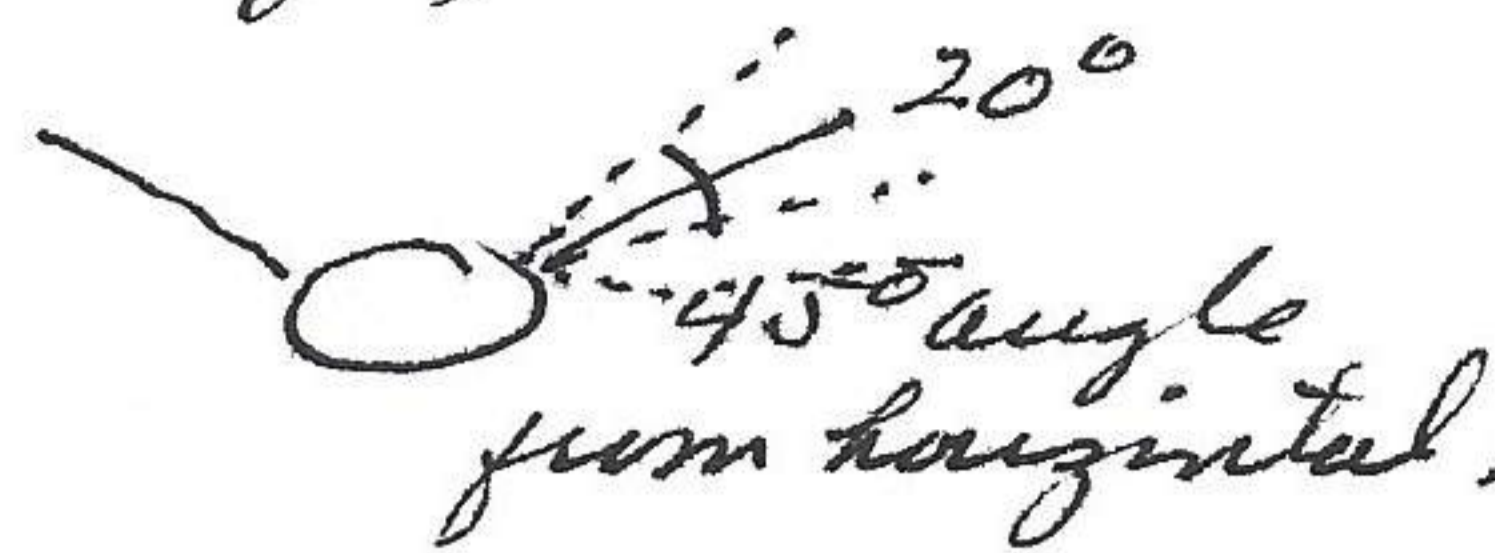 20°
45° angle
from horizintal.